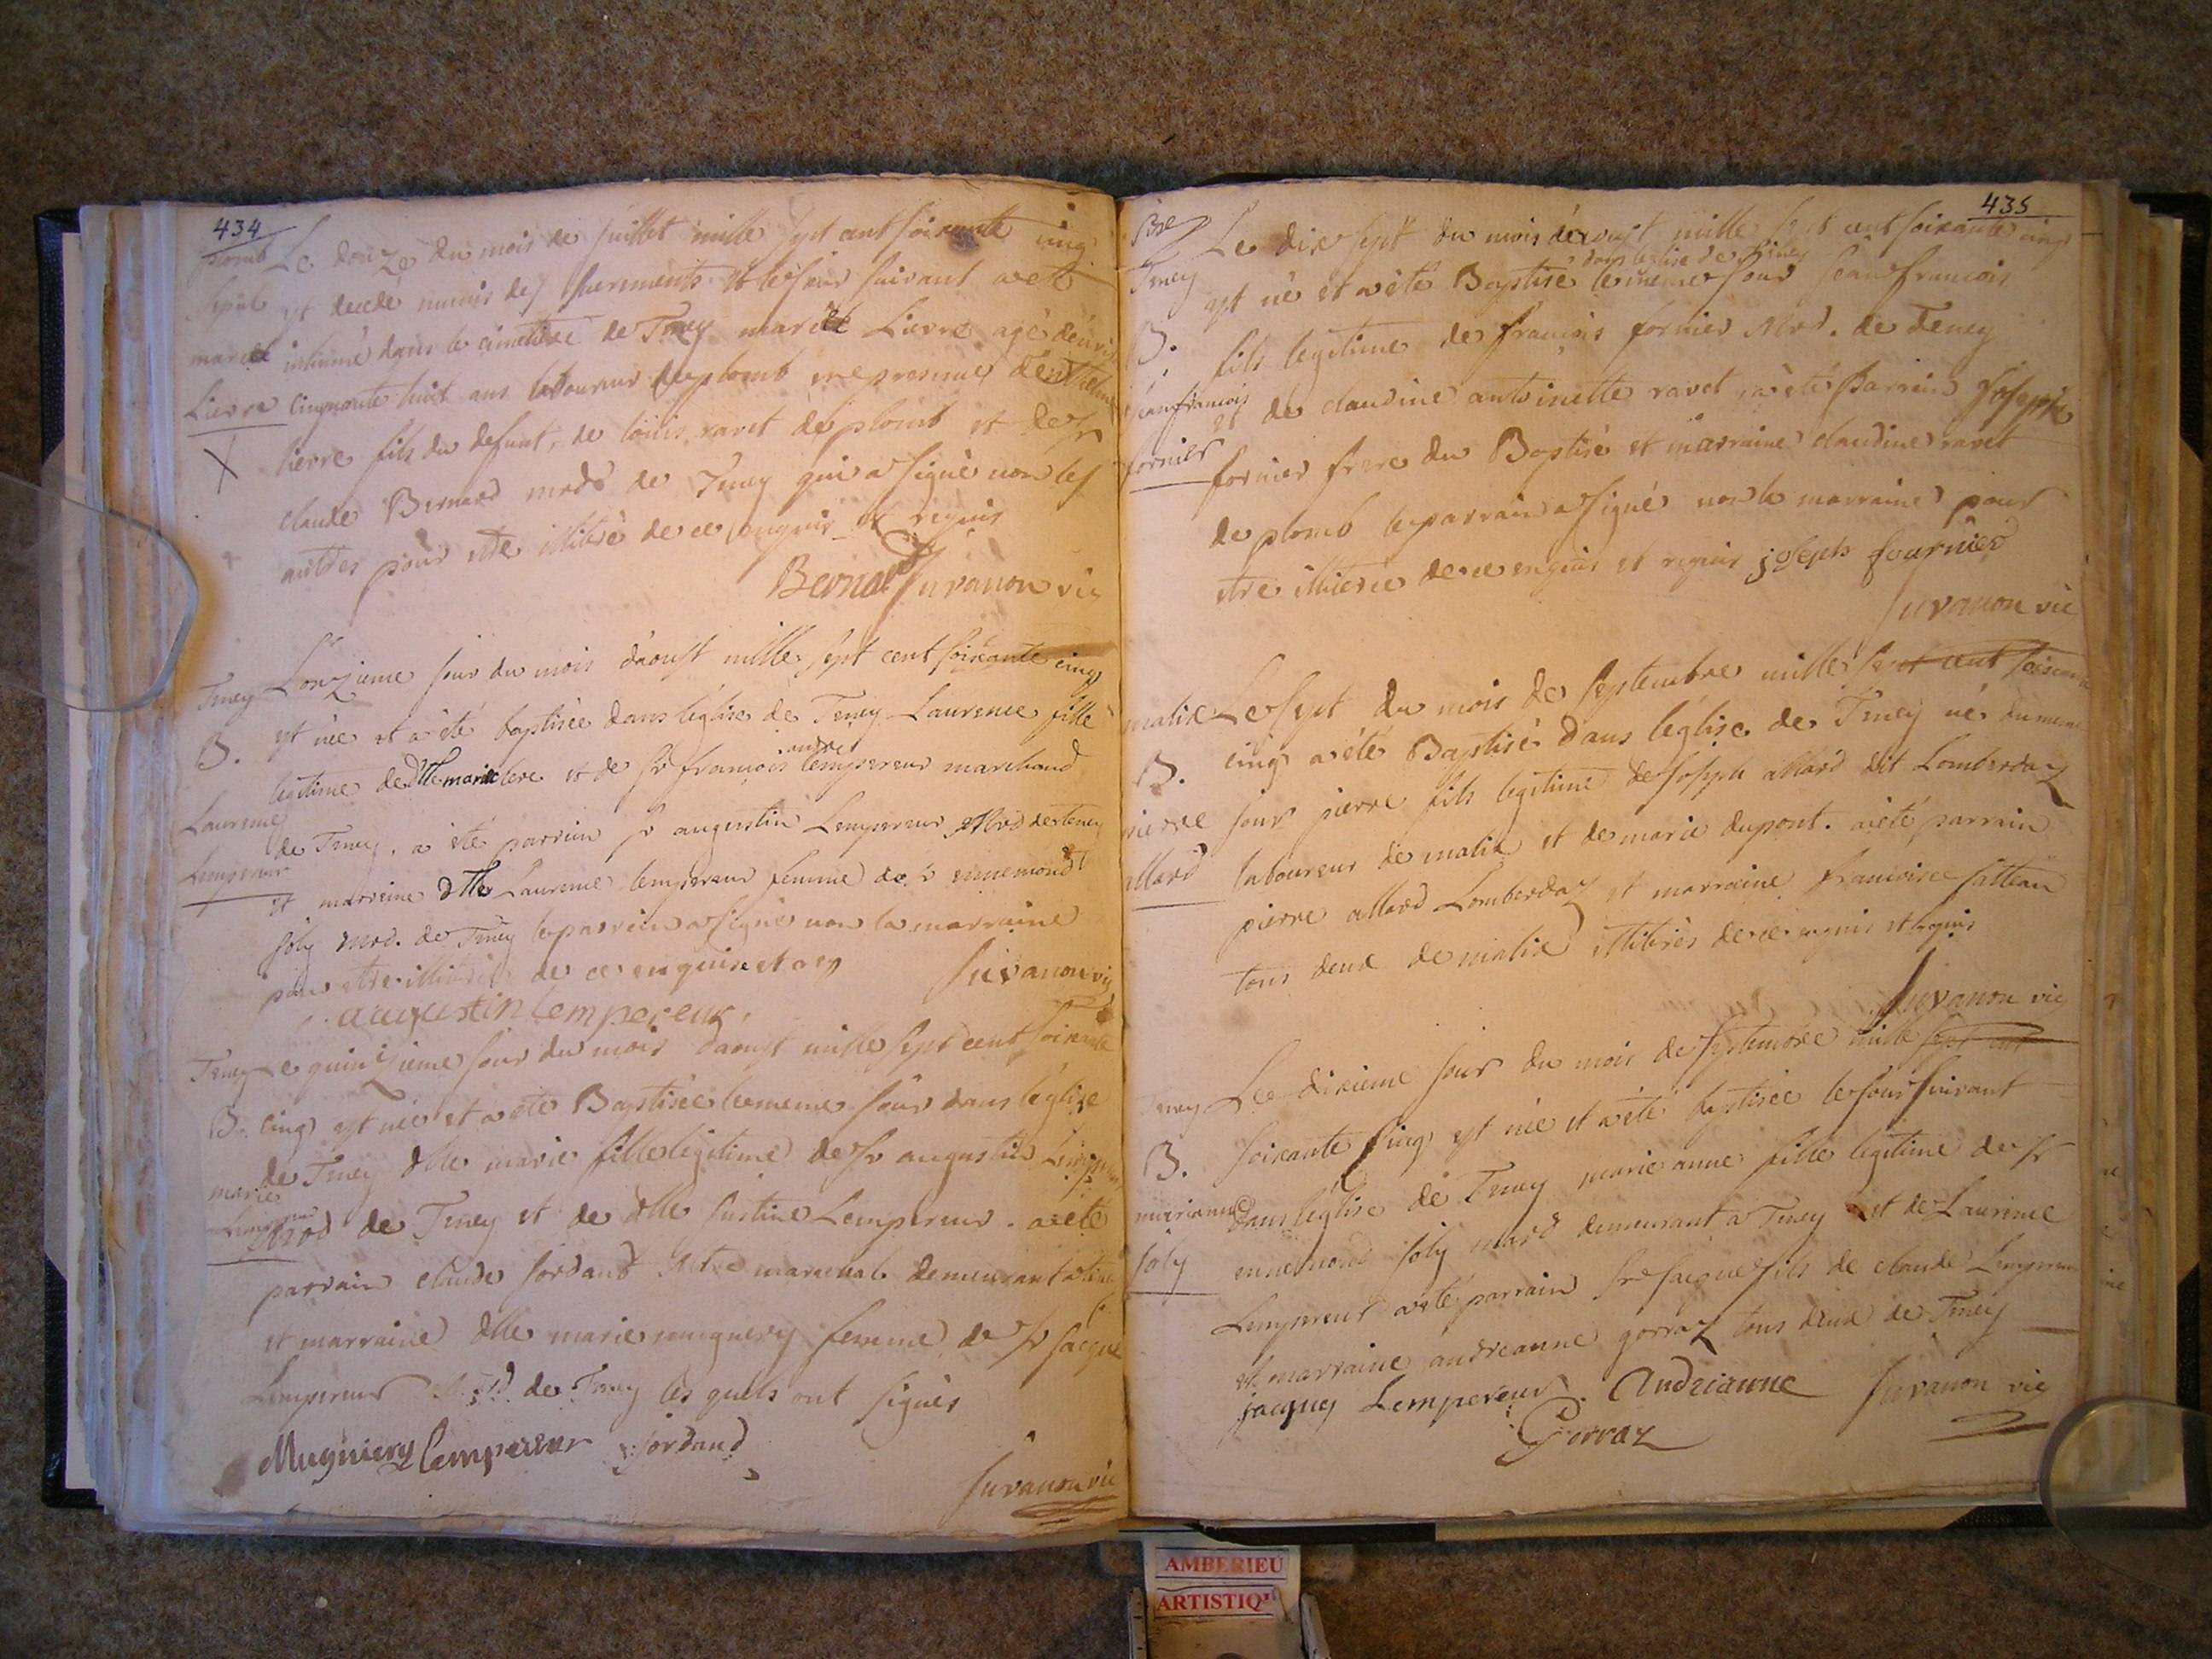 434
plomb Le douze du mois de juillet mille sept cent soixante cinq
sepul est decedé munis des sacrements et le jour suivant a eté
marcel inhumé dans le cimetiere de Teney marcel Lievre agé d'environ
Lievre cinquante huit ans laboureur de plomb en presence d'enthelme
lievre fils du defunt, de louis ravet de plomb et de sr
claude Bernard mrd de Teney qui a signé non les
autres pour etre illiteré de ce enquis et requis
Bernard Juvanon vic
Teney L'onzieme jour du mois d'aoust mille sept cent soixante cinq
B. est née et a été baptisée dans l'église de Teney Laurence fille
legitime de dlle marie et de sr francois lempereur marchand
Laurence
de Teney, a été parrein sr augustin Lempereur Mrd de teney
Lempereur
et marreine dlle Laurence lempereur femme de sr ennemond
joly mrd. de Teney le parrein a signé non la marraine
pour etre illiterée de ce enquise et
Juvanon vic
augustin lempereur
Teney Le quinzieme jour du mois d'aoust mille sept cent soixante
B. cinq est née et a eté Baptisée le meme jour dans l'église
de Teney dlle marie fille legitime de sr augustin Lempereur
marie
Lempereur
Mrd de Teney et de dlle justine Lempereur. a eté
parrain claude jordand Mtre marechal demeurant a teney
et marraine dlle marie mugniery femme de sr jacque
Lempereur Mrd de Teney les quels ont signés
Mugniery lempereur jordand
Juvanon vic
435
Teney Le dix sept du mois d'aoust mille sept cent soixante cinq
dans leglise de Teney
est né et a été Baptisé le meme jour jean francois
B. fils legitime de françois fornier Mrd. de Teney
jean francois
et de claudine antoinette ravet, a été Parrain joseph
fornier
fornier frere du Baptisé et marraine claudine ravet
de plomb le parrain a signé non la marraine pour
etre illiterée de ce enquis et requis joseph fournier
Juvanon vic
matix Le sept du mois de septembre mille sept cent soixante
B. cinq a été Baptisé dans l'église de Teney né du meme
pierre jour pierre fils legitime de joseph allard dit Lombardaz
allard laboureur de matix et de marie dupont. a été parrain
pierre allard Lombardaz et marraine francoise
tous deux de matix illiterés de ce enquis et requis
Juvanon vic
Teney Le dixieme jour du mois de septembre mille sept cent
B. soixante cinq est née et a été baptisée le jour suivant
marianne dans l'église de Teney marie anne fille legitime de sr
joly ennemond joly mard demeurant a Teney et de Laurence
Lempereur a été parrain sr jacque fils de claude Lempereur
et marraine andreanne gorraz tous deux de Teney
jacques Lempereur. Andrianne Juvanon vic
Gorraz
AMBERIEU
ARTISTIQ